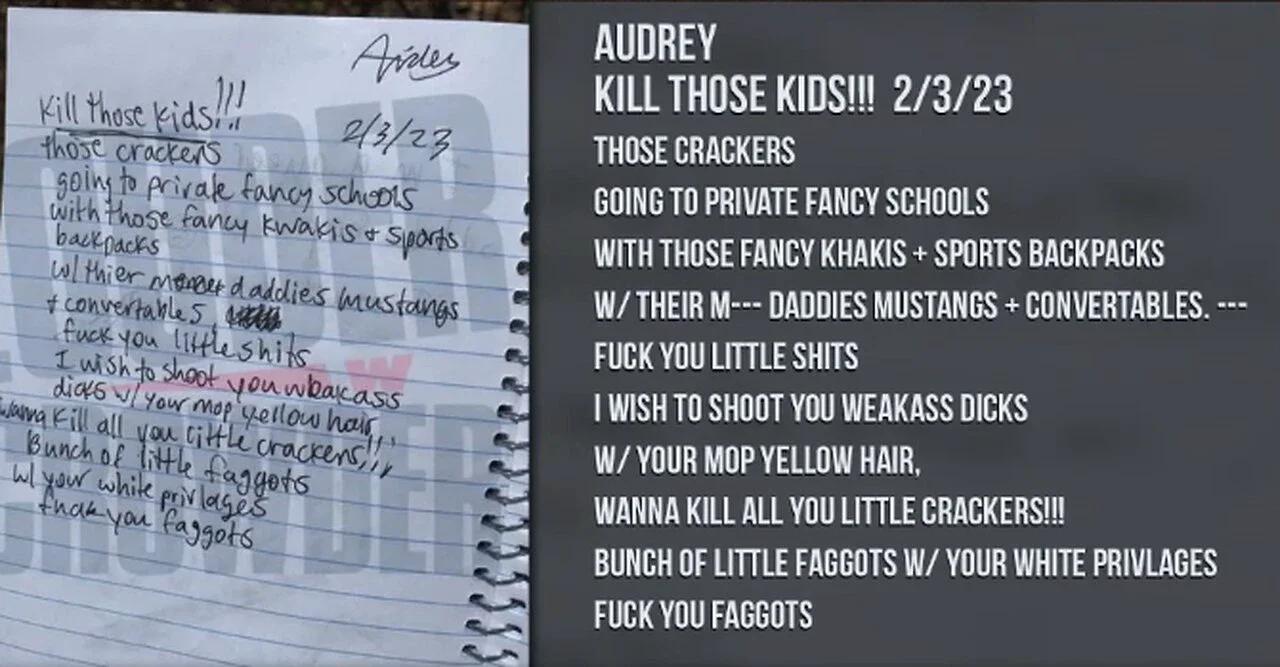 Aiden
Kill those kids!!!
2/3/23
those crackers
going to private fancy schools
with those fancy kwakis + sports
backpacks
w/ thier daddies mustangs
+ convertables
fuck you little shits
I wish to shoot you weakass
dicks w/ your mop yellow hair,
wanna kill all you little crackers!!!
Bunch of little faggots
w/ your white privlages
fuck you faggots
AUDREY
KILL THOSE KIDS!!! 2/3/23
THOSE CRACKERS
GOING TO PRIVATE FANCY SCHOOLS
WITH THOSE FANCY KHAKIS + SPORTS BACKPACKS
W/ THEIR M--- DADDIES MUSTANGS + CONVERTABLES. ---
FUCK YOU LITTLE SHITS
I WISH TO SHOOT YOU WEAKASS DICKS
W/ YOUR MOP YELLOW HAIR,
WANNA KILL ALL YOU LITTLE CRACKERS!!!
BUNCH OF LITTLE FAGGOTS W/ YOUR WHITE PRIVLAGES
FUCK YOU FAGGOTS